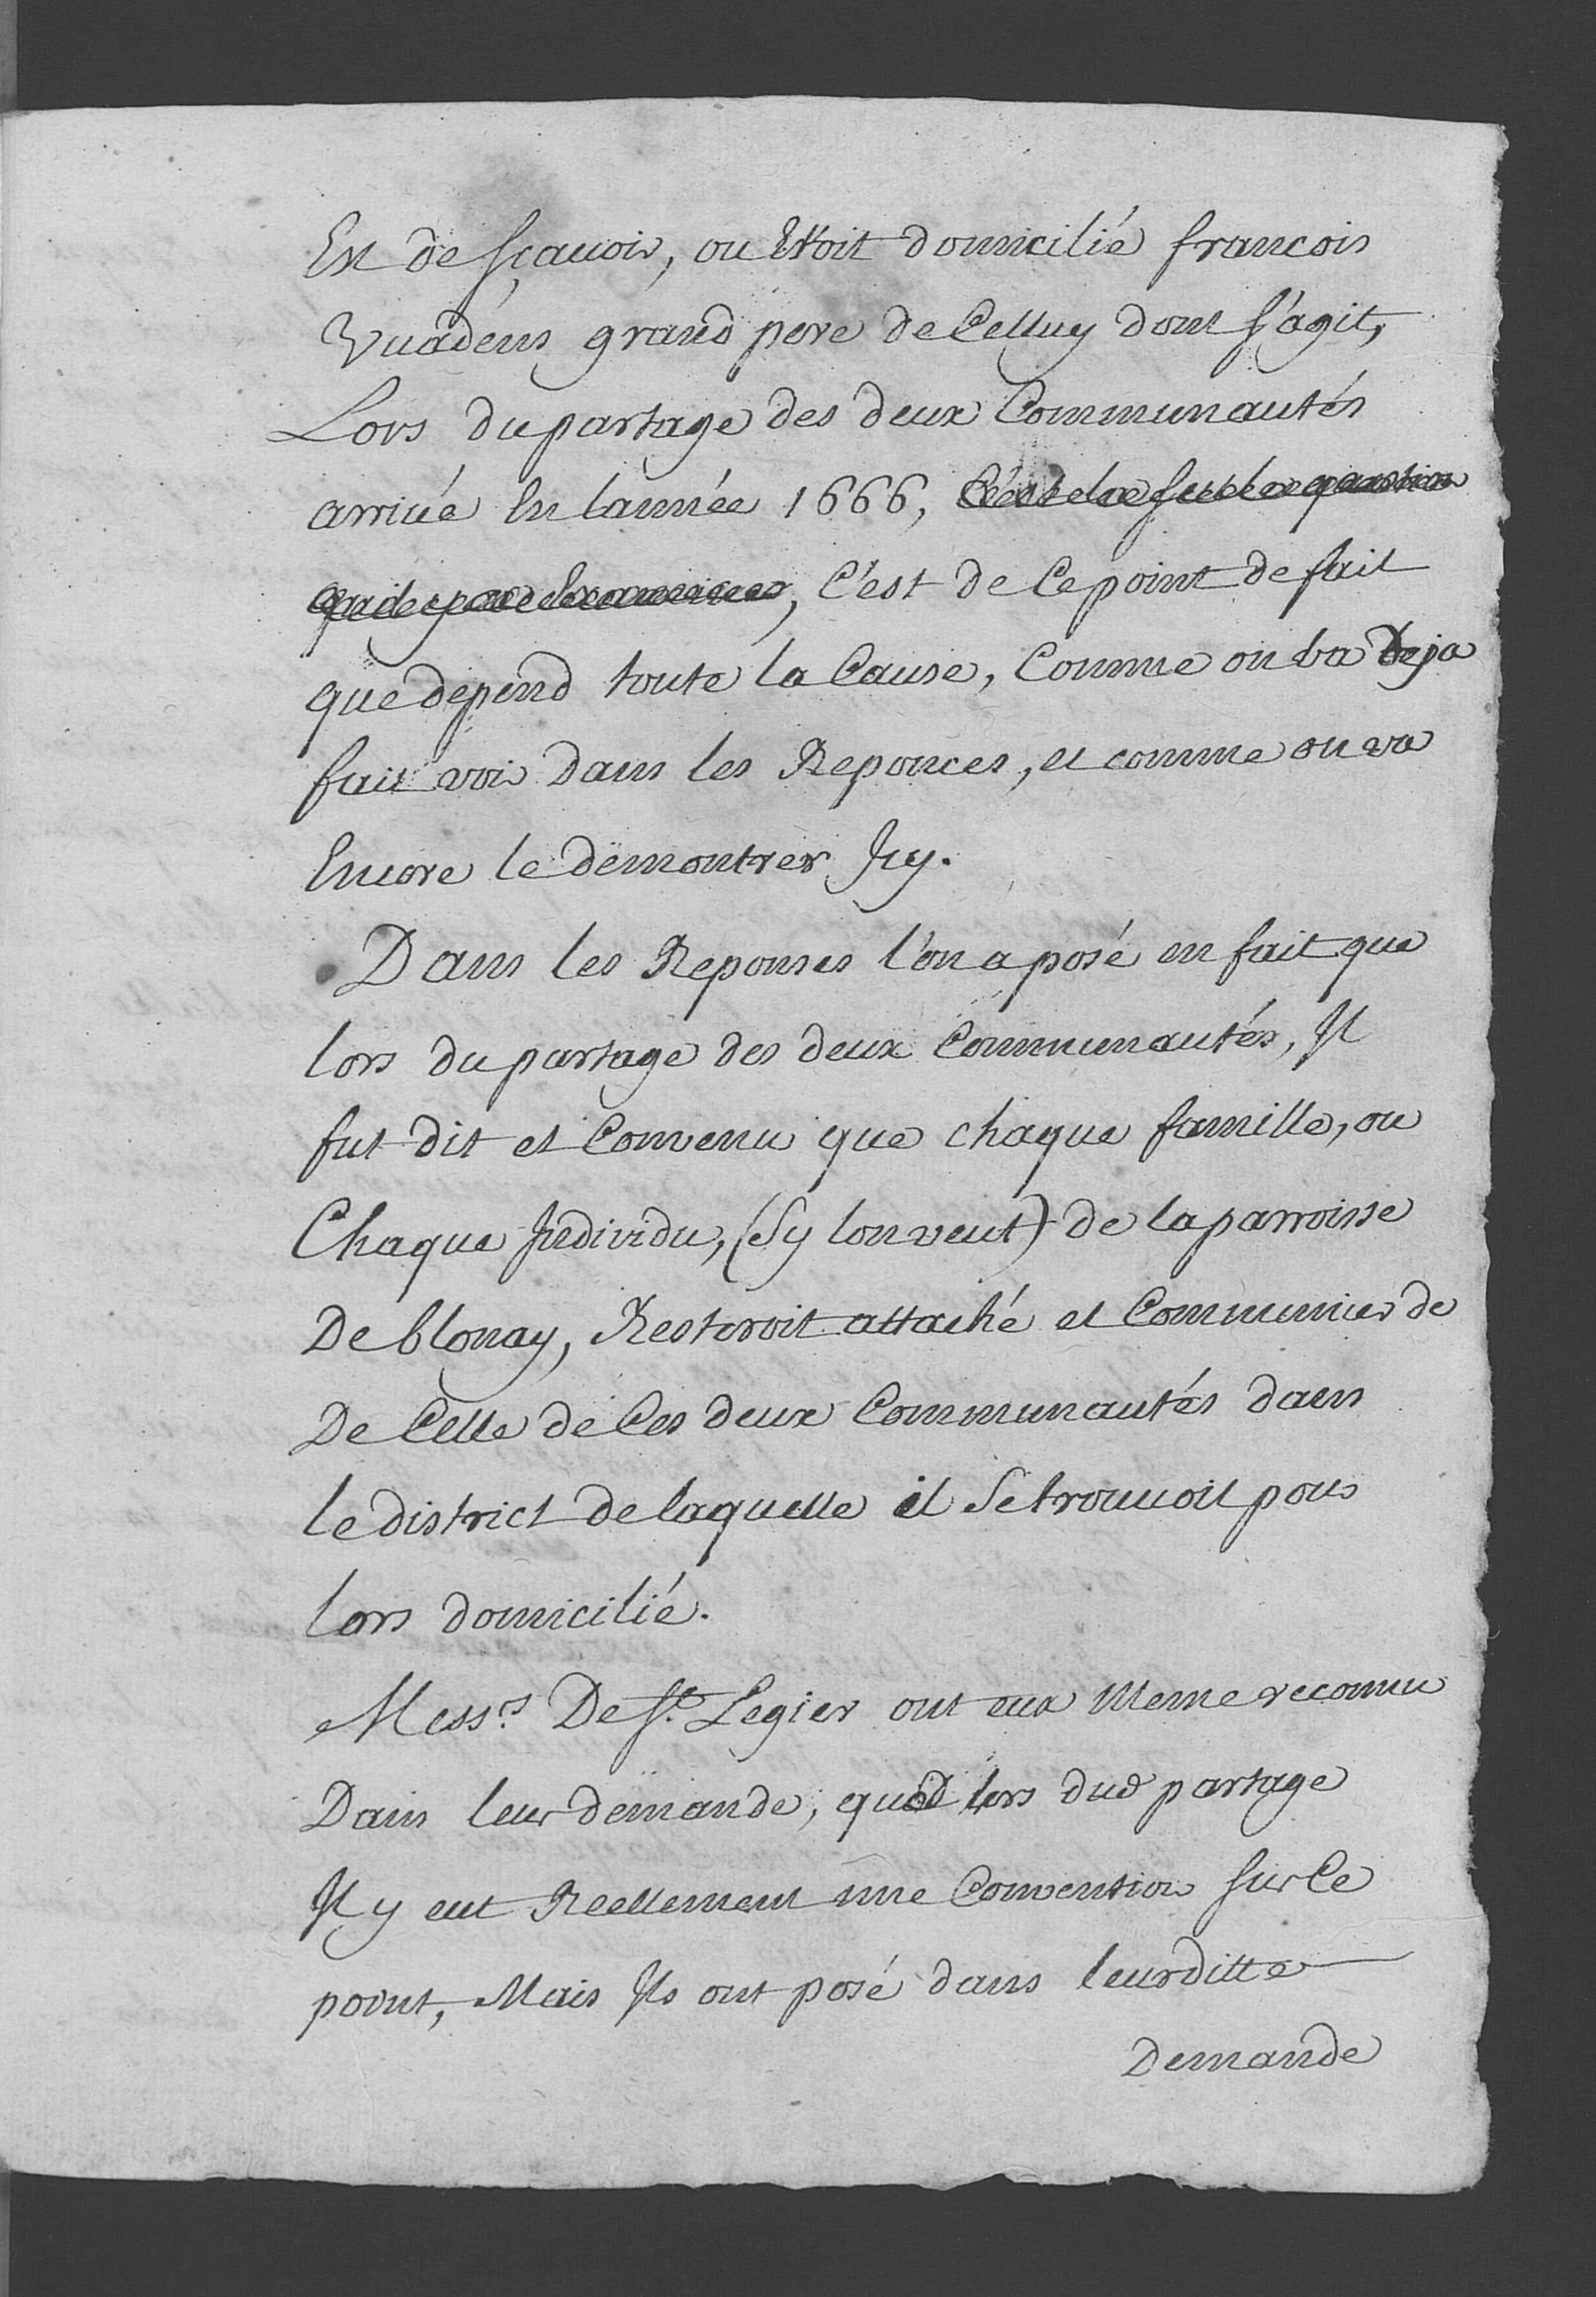 Est de sçauoir, ou Etoit domicilié francois
Vuadens grand pere de Celluy dont s'agit,
Lors du partage des deux Communautés
arriué En lannée 1666, C'est la seule question
qu'il y a a Examiner, C'est de Ce point de fait
que depend toute la Cause, Comme on la deja
fait voir dans les Reponces, et comme on va
Encore le demontrer Jcy.
Dans les Reponses l'on a posé en fait que
lors du partage des deux Communautés, Jl
fut dit et Convenu que chaque famille, ou
Chaque Jndividu, (Sy lon veut) de la parroisse
De blonay, Resteroit attaché et Communier de
De Celle de Ces deux Communautés dans
le district de laquelle il Se trouuoit pour
lors domicilié.
Mess.rs De S.t Legier ont eux Meme reconnu
Dans leur demande, que lors dud partage
Jl y eut Reellement une Convention sur Ce
point, Mais Jls ont posé dans leurditte
Demande